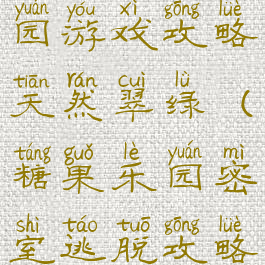 yuán yóu xì gōng lüè
园游戏攻略
tiān rán cuì lǜ
天然翠绿（
táng guǒ lè yuán mì
糖果乐园密
shì táo tuō gōng lüè
室逃脱攻略